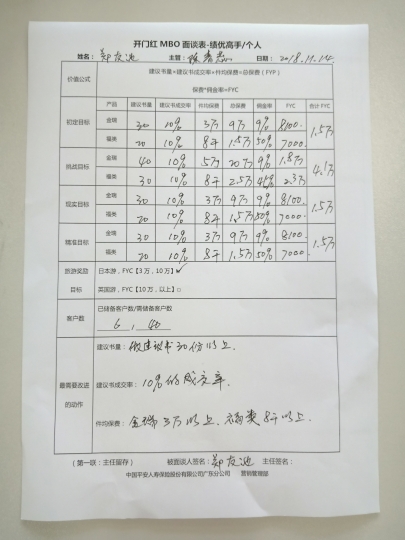 开门红 MBO 面谈表-绩优高手/个人
姓名: 郑友迎 主管: 日期: 2018.11.14.
价值公式 建议书量*建议书成交率*件均保费=总保费(FYP)
保费*佣金率=FYC
产品 建议书量 建议书成交率 件均保费 总保费 佣金率 FYC 合计 FYC
初定目标 金瑞 30 10% 3万 9万 9% 8100. 1.5万
福类 20 10% 8千 1.5万 50% 7000.
挑战目标 金瑞 40 10% 5万 20万 9% 1.8万 4.1万
福类 30 10% 8千 2.5万 45% 2.3万
现实目标 金瑞 30 10% 3万 9万 9% 8100 1.5万
福类 20 10% 8千 1.5万 50% 7000
精准目标 金瑞 30 10% 3万 9万 9% 8100 1.5万
福类 20 10% 8千 1.5万 50% 7000
旅游奖励 日本游,FYC【3万,10万】✓
目标 英国游,FYC【10万,以上】□
客户数 已储备客户数/需储备客户数
6 , 40
建议书量: 做建议书30份以上.
最需要改进 建议书成交率: 10%的成交率.
的动作
件均保费: 金瑞3万以上. 福类8千以上.
(第一联:主任留存) 被面谈人签名: 郑友迎 主任签名:
中国平安人寿保险股份有限公司广东分公司 营销管理部